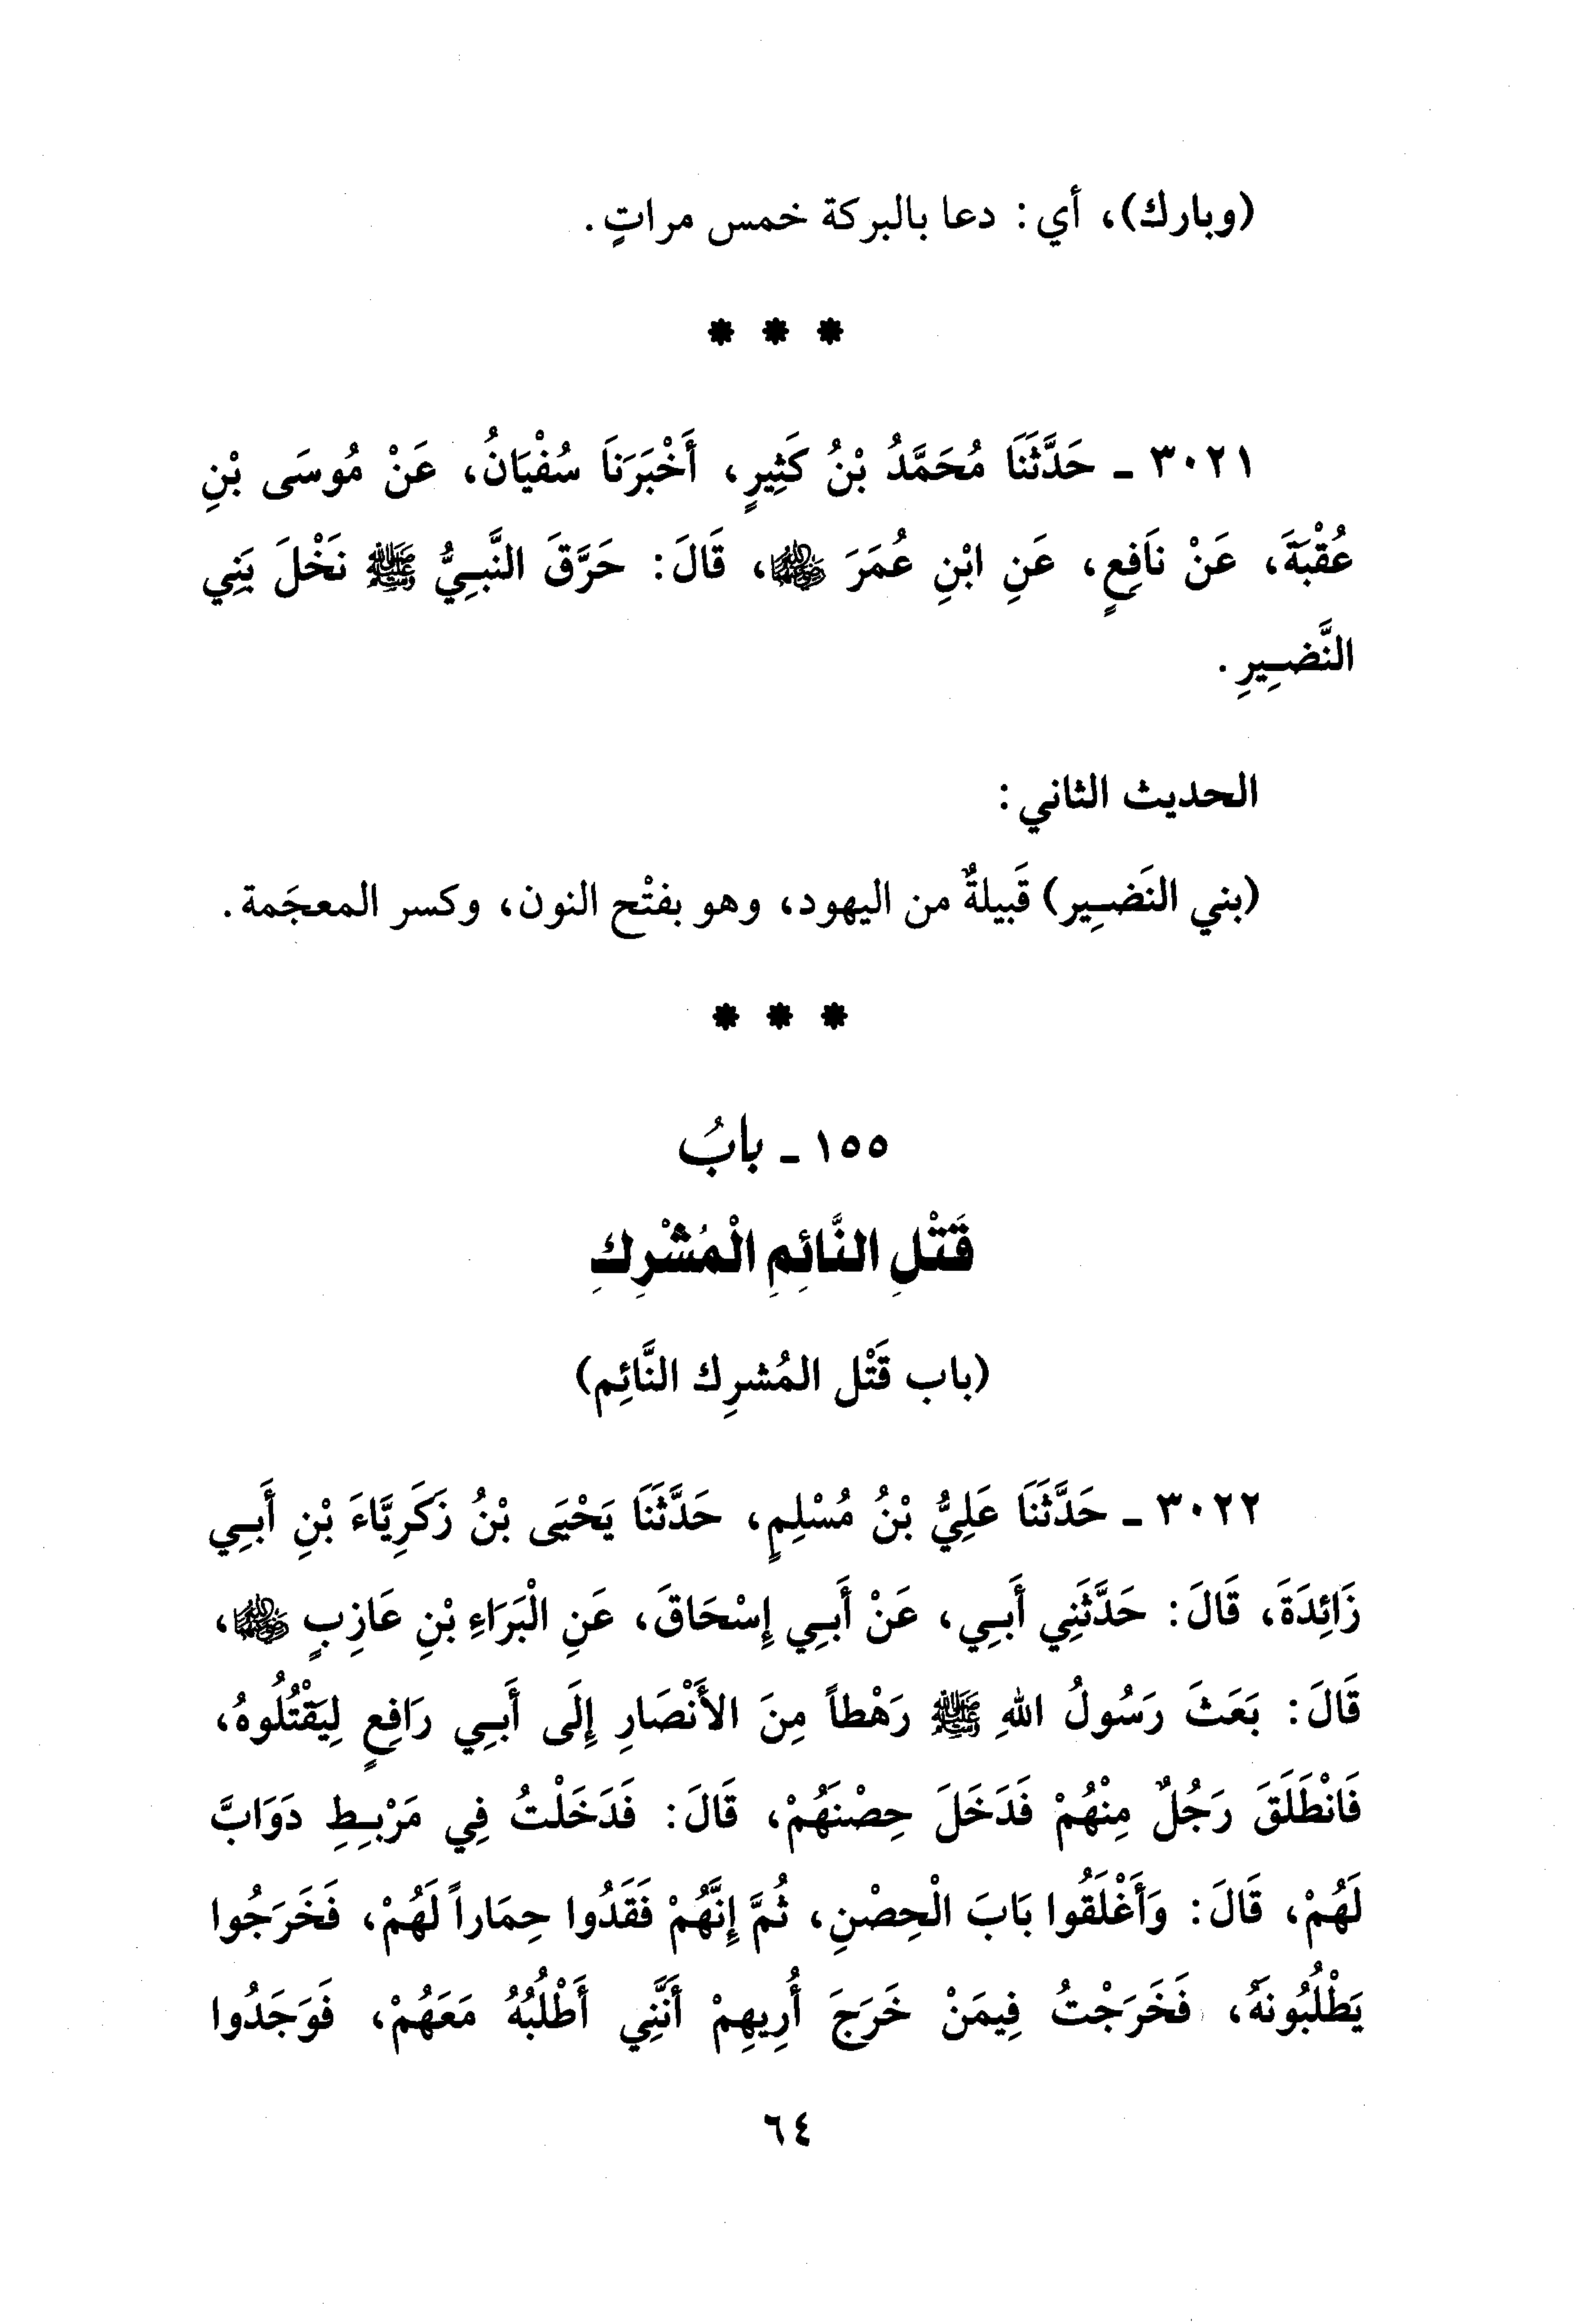 (وبارك)، أي: دعا بالبركة خمس مراتٍ.
* * *
٣٠٢١ - حَدَّثَنَا مُحَمَّدُ بْنُ كَثِيرٍ، أَخْبَرَنَا سُفْيَانُ، عَنْ مُوسَى بْنِ
عُقْبَةَ، عَنْ نَافِعٍ، عَنِ ابْنِ عُمَرَ ﵄، قَالَ: حَرَّقَ النَّبِيُّ ﷺ نَخْلَ بَنِي
النَّضِيرِ.
الحديث الثاني:
(بني النَضِير) قَبيلةٌ من اليهود، وهو بفتْح النون، وكسر المعجَمة.
* * *
١٥٥ - بابُ
قَتْلِ النَّائِمِ الْمُشْرِكِ
(باب قَتْل المُشرِك النَّائِم)
٣٠٢٢ - حَدَّثَنَا عَلِيُّ بْنُ مُسْلِمٍ، حَدَّثَنَا يَحْيَى بْنُ زَكَرِيَّاءَ بْنِ أَبِي
زَائِدَةَ، قَالَ: حَدَّثَنِي أَبِي، عَنْ أَبِي إِسْحَاقَ، عَنِ الْبَرَاءِ بْنِ عَازِبٍ ﵄،
قَالَ: بَعَثَ رَسُولُ اللهِ ﷺ رَهْطاً مِنَ الأَنْصَارِ إِلَى أَبِي رَافِعٍ لِيَقْتُلُوهُ،
فَانْطَلَقَ رَجُلٌ مِنْهُمْ فَدَخَلَ حِصْنَهُمْ، قَالَ: فَدَخَلْتُ فِي مَرْبِطِ دَوَابَّ
لَهُمْ، قَالَ: وَأَغْلَقُوا بَابَ الْحِصْنِ، ثُمَّ إِنَّهُمْ فَقَدُوا حِمَاراً لَهُمْ، فَخَرَجُوا
يَطْلُبُونَهُ، فَخَرَجْتُ فِيمَنْ خَرَجَ أُرِيهِمْ أَنَّنِي أَطْلُبُهُ مَعَهُمْ، فَوَجَدُوا
٦٤